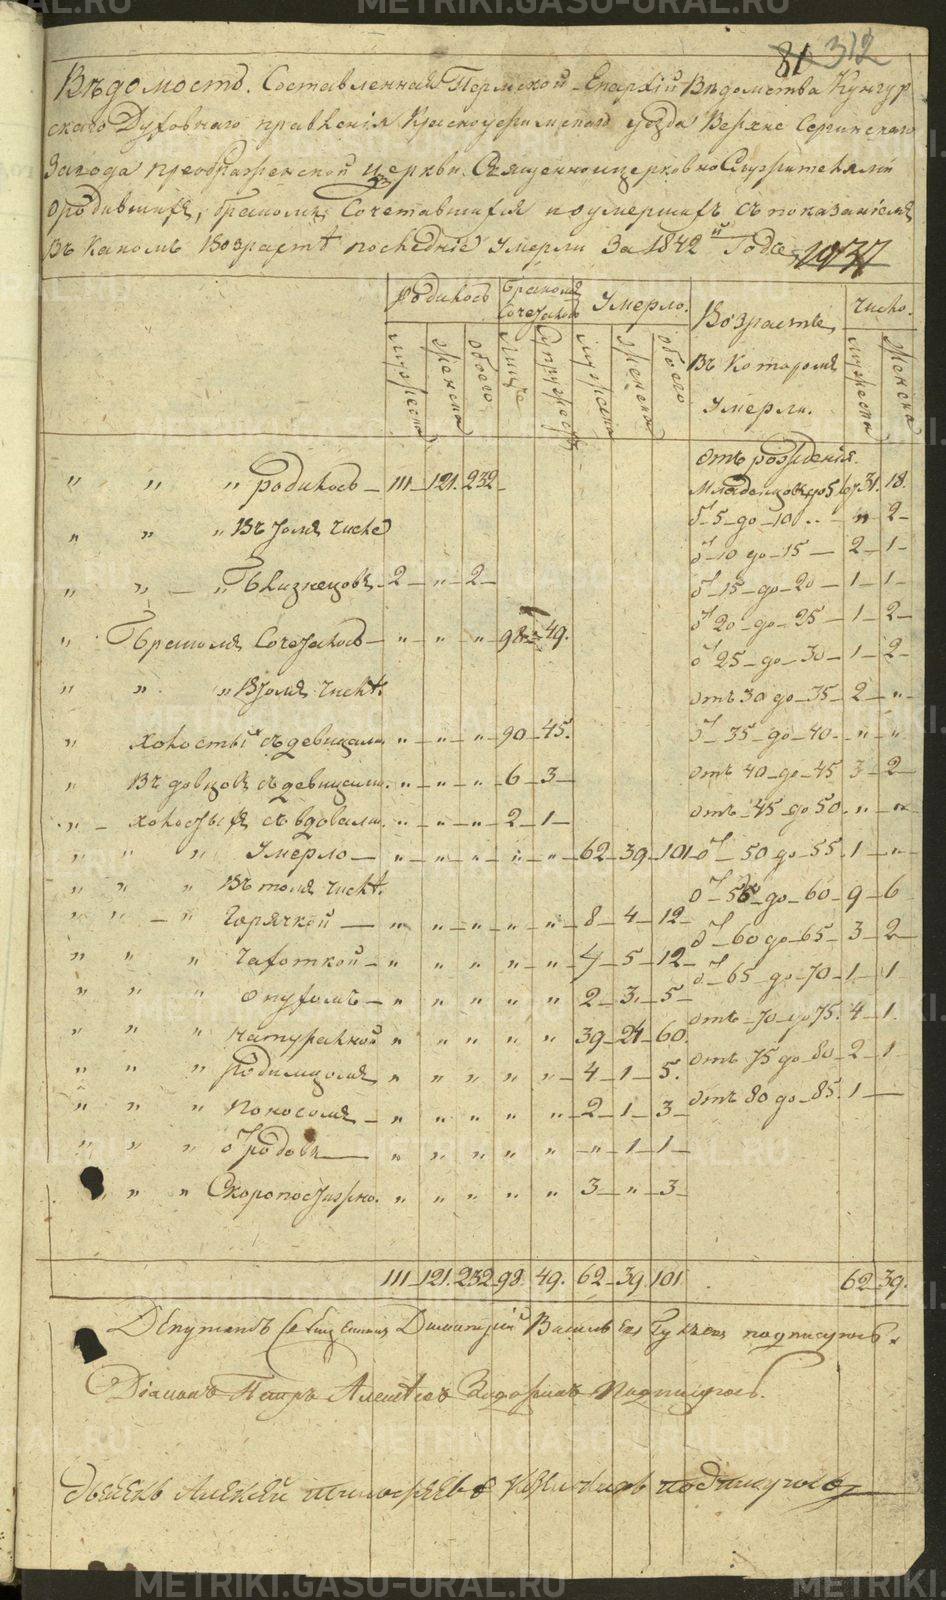 81 312
Вѣдомость. Составленная Пермской Епархій Вѣдомства Кунгур
скаго Духовнаго правленія Красноуфимскаго уѣзда Верхне Сергинскаго
Завода преображенской церкви. Священноцерковнослужителями
о родившихся, бракомъ Сочетавшихся и умершихъ съ показаніемъ
Въ какомъ Возрастѣ последніе Умерли За 1842й Годъ
Родилось Бракомъ Сочеталось Умерло. Возрастъ Въ Которомъ Умерли. Число.
мужеска женска обоего лицъ супружествъ мужеска женска обоего мужеска женска
отъ рожденія.
" " " родилось 111 121 232 Младенцовъ до 5 31 18
Въ томъ числе от 5 до 10 " 2
от 10 до 15 2 1
" " " Близнецовъ 2 " 2 от 15 до 20 1 1
от 20 до 25 1 2
" Бракомъ Сочеталось " " " 98 49. от 25 до 30 1 2
" " " В томъ числѣ. отъ 30 до 35 2 "
" холостый съ девицами " " " 90 45. от 35 до 40 " "
" Въдовцовъ съ девицами. " " " 6 3 отъ 40 до 45 3 2
" холостыя съ вдовами. " " " 2 1 отъ 45 до 50. " "
" " " Умерло " " " " " 62 39 101 от 50 до 55. 1 "
" " " Въ томъ числѣ. от 55 до 60 9 6
" " " Горячкой " " " " " 8 4 12 от 60 до 65 3 2
" " " Чахоткой " " " " " 4 5 12 от 65 до 70 1 1
" " " опухолью " " " " " 2 3 5 отъ 70 до 75. 4 1
" " " натуральной " " " " " 39 24 60. отъ 75 до 80 2 1
" " " Родимцомъ " " " " " 4 1 5. отъ 80 до 85. 1
" " " Поносомъ " " " " " 2 1 3
" " " отродовъ " " " " " " 1 1
" " Скоропостижно. " " " " " 3 " 3
111 121 232 98 49. 62 39 101 62 39.
Депутатъ Священникъ Димитрій Васильевъ подписуюсь.
Діаконъ Петръ Алексѣевъ подписуюсь.
Дьячекъ Алексей Тимофеевъ подписуюсь
METRIKI.GASU-URAL.RU